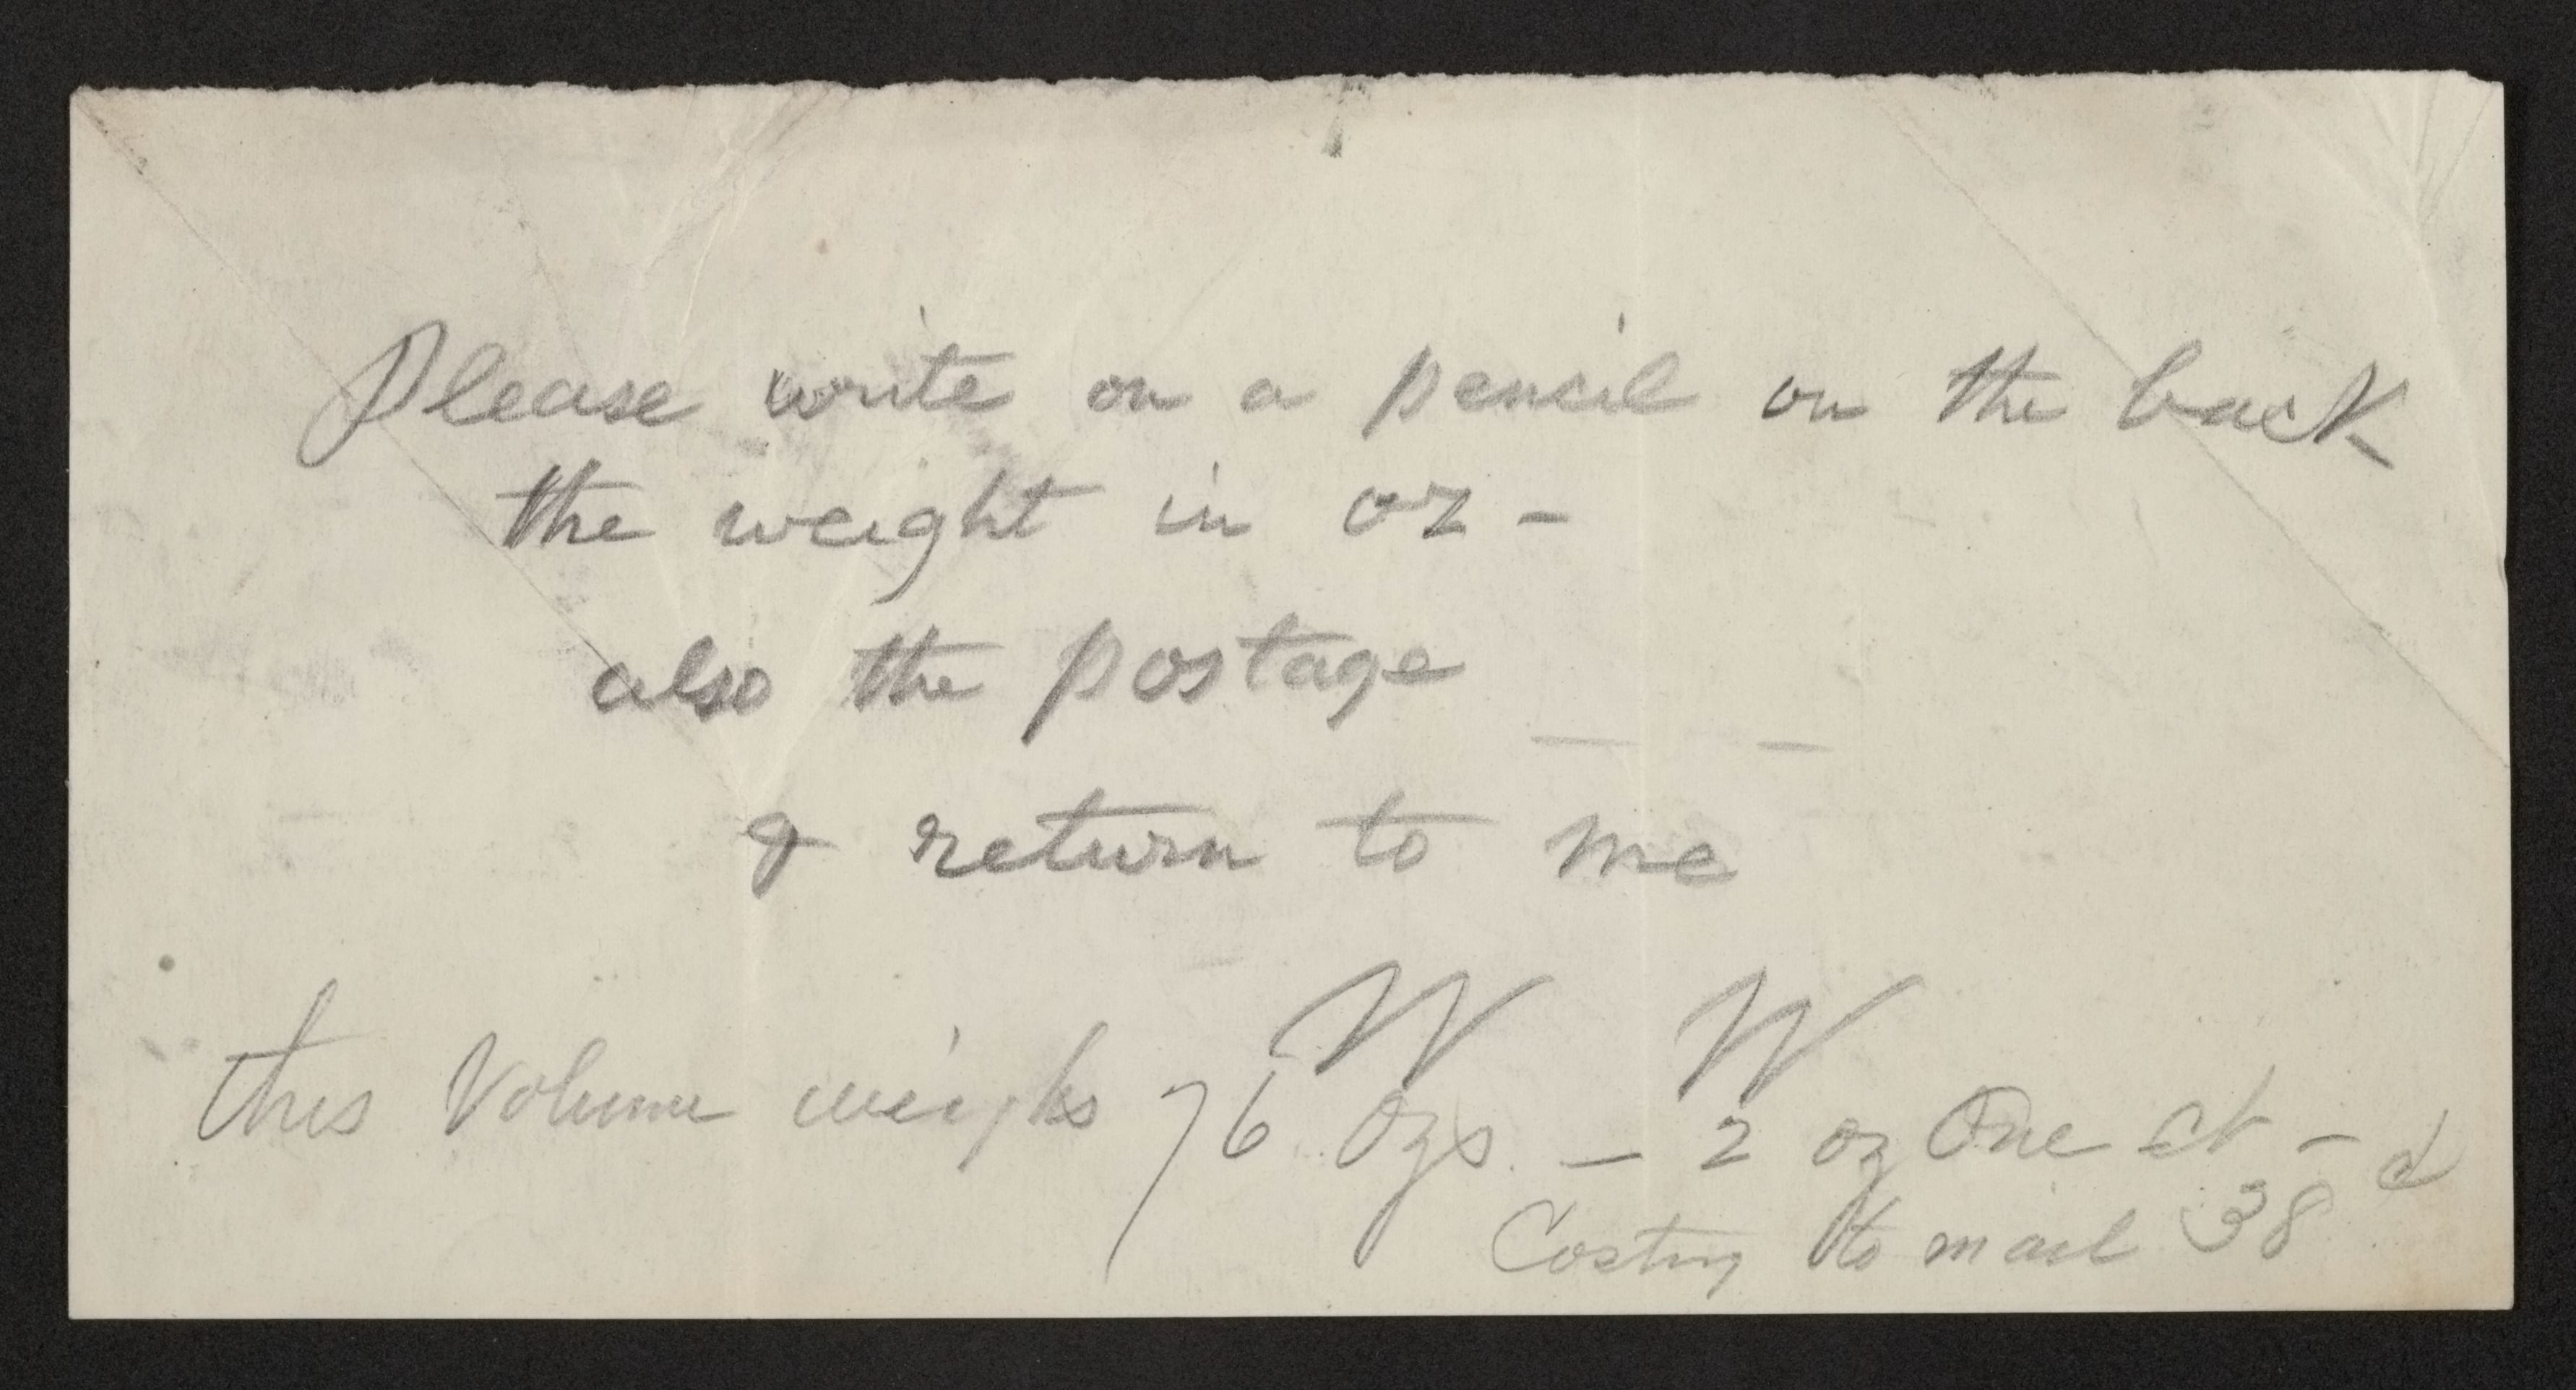 Please write on a pencil on the back
the weight in oz -
also the postage
& return to me
W W
this Volume weighs 76 Ozs. — 2 oz One ct -
Costing to mail 38 ct